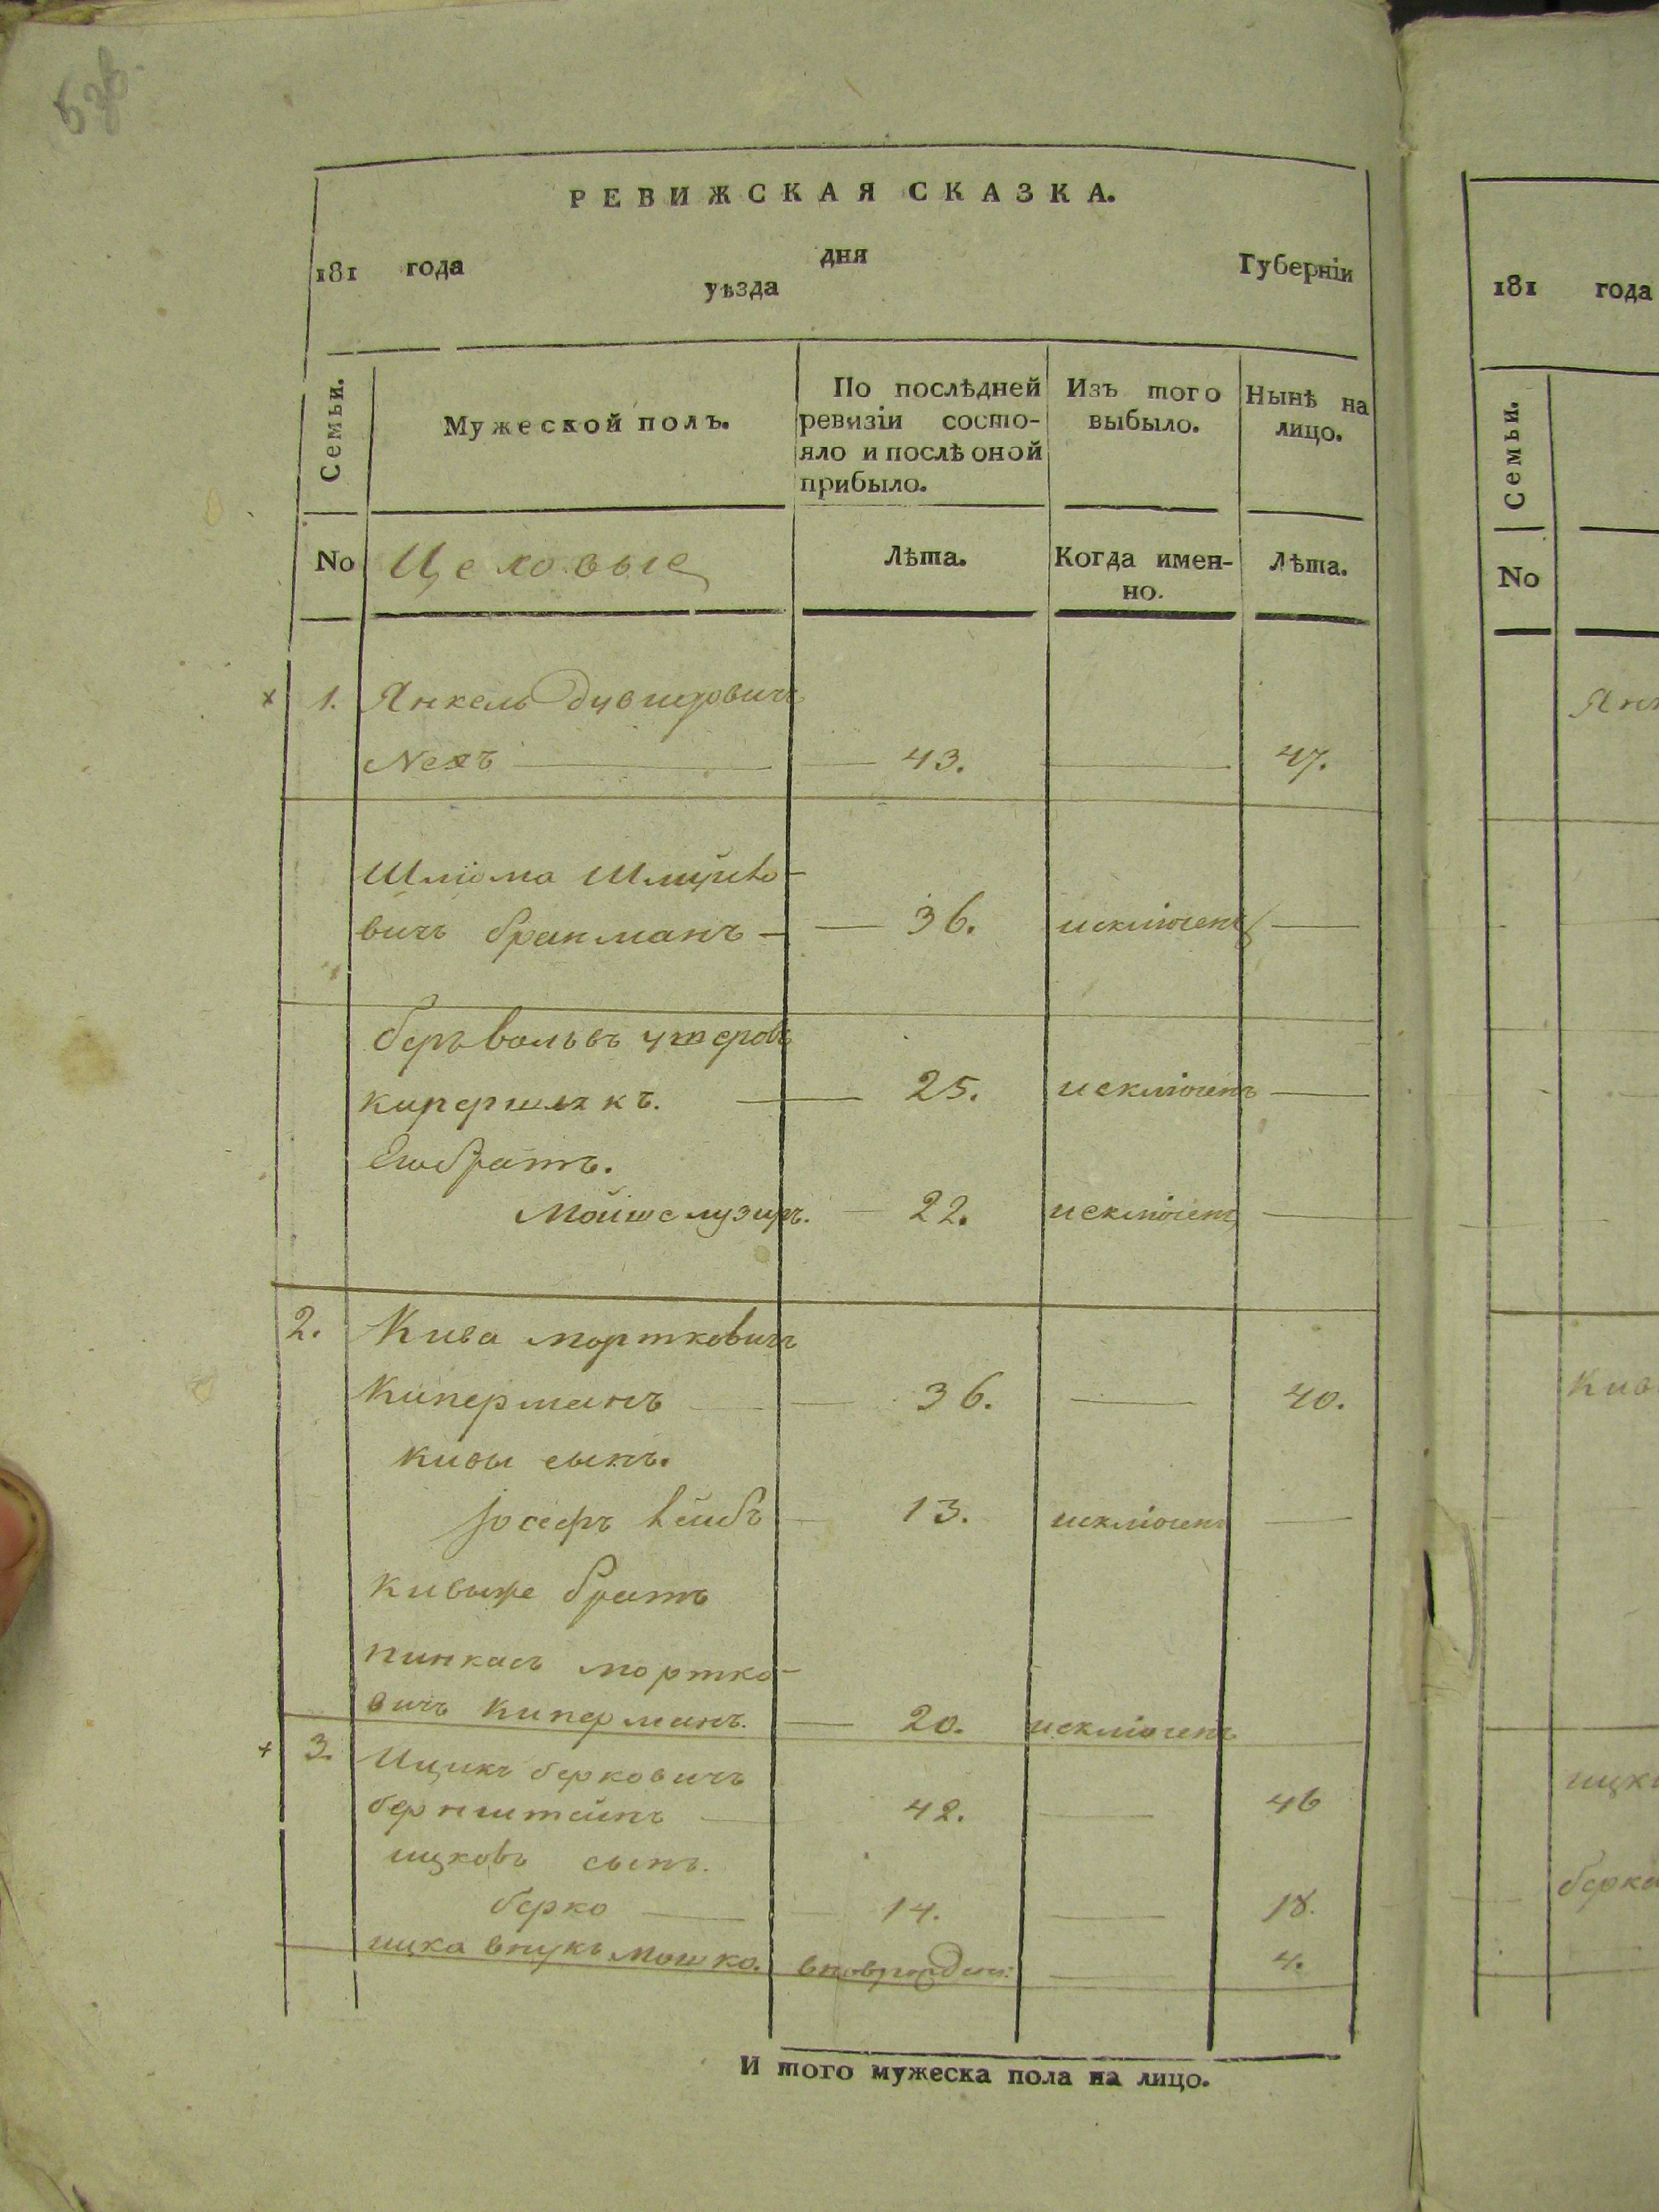 РЕВИЖСКАЯ СКАЗКА.
181 года дня Губерніи
уѣзда
Семьи.
Мужеской полъ.
По послѣдней ревизіи состо-
яло и послѣ оной
прибыло.
Изъ того
выбыло.
Нынѣ на
лицо.
No Цеховые Лѣта. Когда имен-
но. Лѣта.
1. Янкель Дувидовичъ
43. 47.
Шліома
вичъ бракманъ 36. исключенъ
беръ вольвъ
25. исключенъ
Его братъ.
Мойше лузиръ. 22. исключенъ
2. Кива мортковичъ
Киперманъ 36. 40.
кивы сынъ.
Іосефъ Лейбъ 13. исключенъ
кивы же братъ
пинкасъ мортко-
вичъ Киперманъ. 20. исключенъ
3. Ицикъ берковичъ
бернштейнъ 42. 46
ицковъ сынъ.
берко 14. 18.
ицка внукъ мошко. 4.
И того мужеска пола на лицо.
181 года
Семьи.
No